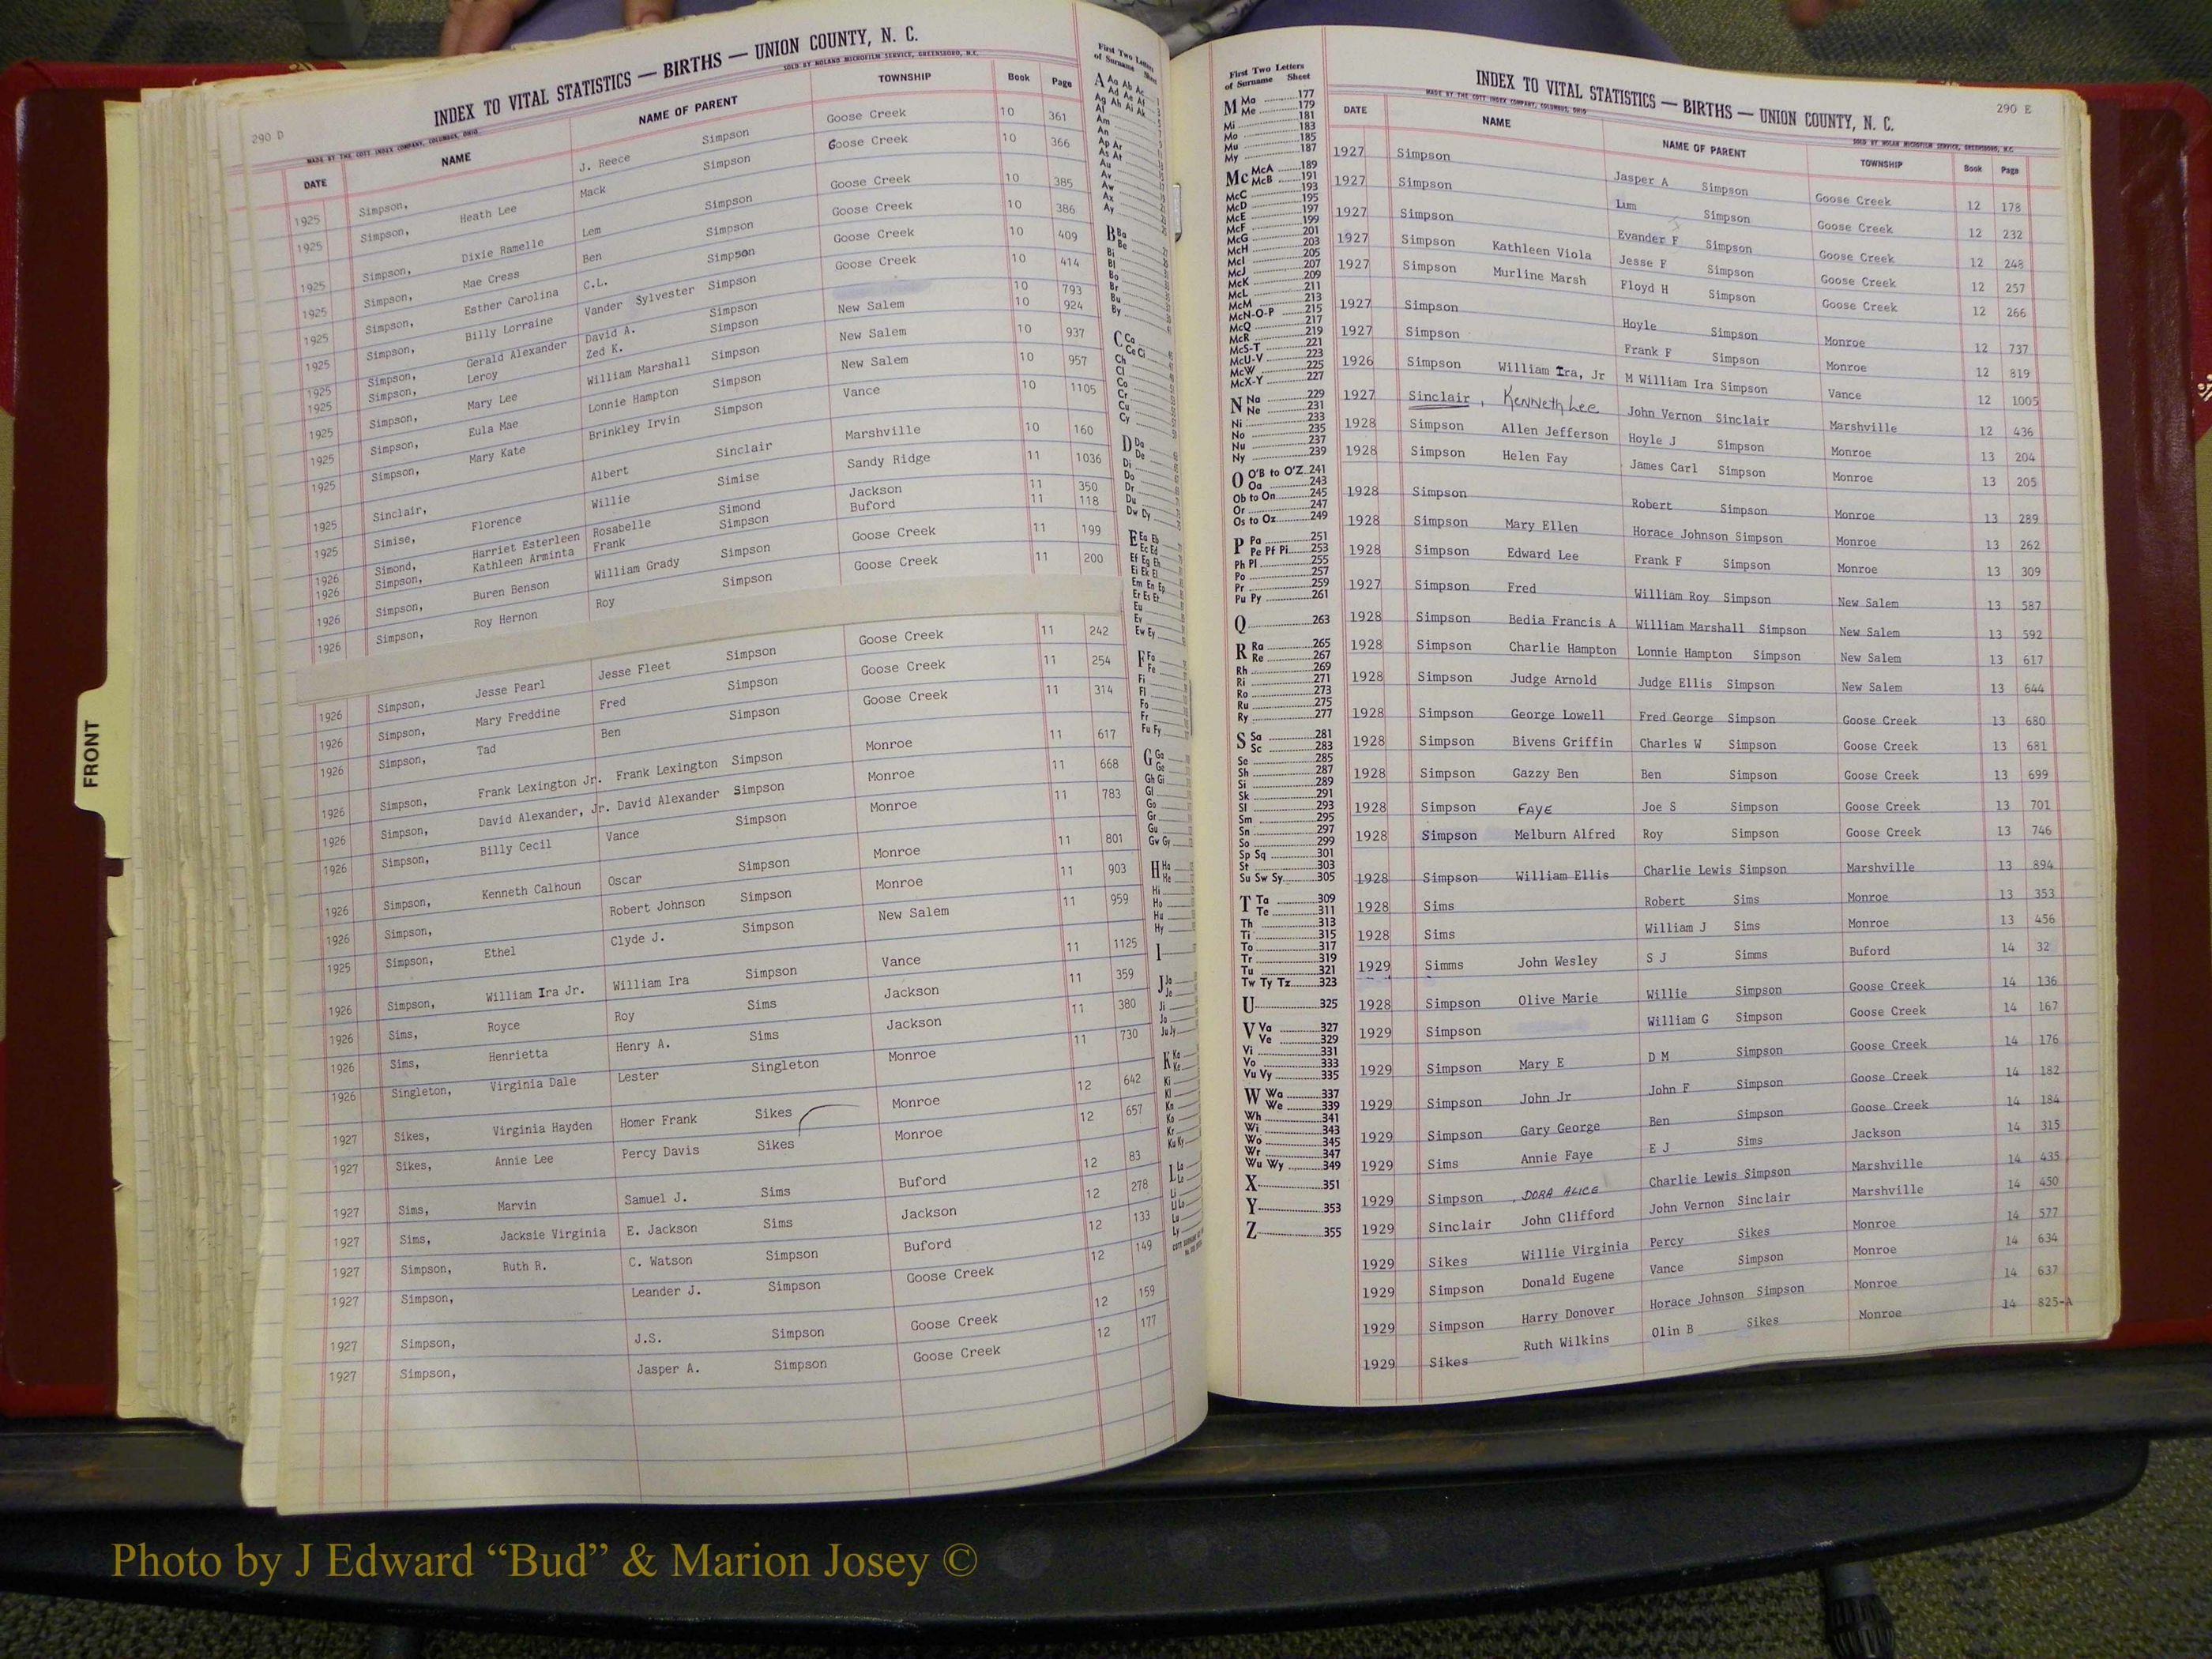 290 D
INDEX TO VITAL STATISTICS — BIRTHS — UNION COUNTY, N. C.
MADE BY THE COTT INDEX COMPANY, COLUMBUS, OHIO
SOLD BY NOLAND MICROFILM SERVICE, GREENSBORO, N.C.
DATE NAME NAME OF PARENT TOWNSHIP Book Page
1925 Simpson, J. Reece Simpson Goose Creek 10 361
1925 Simpson, Heath Lee Mack Simpson Goose Creek 10 366
1925 Simpson, Dixie Ramelle Lem Simpson Goose Creek 10 385
1925 Simpson, Mae Cress Ben Simpson Goose Creek 10 386
1925 Simpson, Esther Carolina C.L. Simpson Goose Creek 10 409
1925 Simpson, Billy Lorraine Vander Sylvester Simpson Goose Creek 10 414
1925 Simpson, Gerald Alexander David A. Simpson 10 793
1925 Simpson, Leroy Zed K. Simpson New Salem 10 924
1925 Simpson, Mary Lee William Marshall Simpson New Salem 10 937
1925 Simpson, Eula Mae Lonnie Hampton Simpson New Salem 10 957
1925 Simpson, Mary Kate Brinkley Irvin Simpson Vance 10 1105
1925 Sinclair, Albert Sinclair Marshville 10 160
1925 Simise, Florence Willie Simise Sandy Ridge 11 1036
1926 Simond, Harriet Esterleen Rosabelle Simond Jackson 11 350
1926 Simpson, Kathleen Arminta Frank Simpson Buford 11 118
1926 Simpson, Buren Benson William Grady Simpson Goose Creek 11 199
1926 Simpson, Roy Hernon Roy Simpson Goose Creek 11 200
1926 Simpson, Jesse Pearl Jesse Fleet Simpson Goose Creek 11 242
1926 Simpson, Mary Freddine Fred Simpson Goose Creek 11 254
1926 Simpson, Tad Ben Simpson Goose Creek 11 314
1926 Simpson, Frank Lexington Jr. Frank Lexington Simpson Monroe 11 617
1926 Simpson, David Alexander, Jr. David Alexander Simpson Monroe 11 668
1926 Simpson, Billy Cecil Vance Simpson Monroe 11 783
1926 Simpson, Kenneth Calhoun Oscar Simpson Monroe 11 801
1926 Simpson, Robert Johnson Simpson Monroe 11 903
1925 Simpson, Ethel Clyde J. Simpson New Salem 11 959
1926 Simpson, William Ira Jr. William Ira Simpson Vance 11 1125
1926 Sims, Royce Roy Sims Jackson 11 359
1926 Sims, Henrietta Henry A. Sims Jackson 11 380
1926 Singleton, Virginia Dale Lester Singleton Monroe 11 730
1927 Sikes, Virginia Hayden Homer Frank Sikes Monroe 12 642
1927 Sikes, Annie Lee Percy Davis Sikes Monroe 12 657
1927 Sims, Marvin Samuel J. Sims Buford 12 83
1927 Sims, Jacksie Virginia E. Jackson Sims Jackson 12 278
1927 Simpson, Ruth R. C. Watson Simpson Buford 12 133
1927 Simpson, Leander J. Simpson Goose Creek 12 149
1927 Simpson, J.S. Simpson Goose Creek 12 159
1927 Simpson, Jasper A. Simpson Goose Creek 12 177
FRONT
First Two Letters
of Surname Sheet
A Aa Ab Ac
Ad Ae Af
Ag Ah Ai Ak
Al
Am
An
Ap Ar
As At
Au
Av
Aw
Ax
Ay
B Ba
Be
Bi
Bl
Bo
Br
Bu
By
C Ca
Ce Ci
Ch
Cl
Co
Cr
Cu
Cy
D Da
De
Di
Do
Dr
Du
Dw Dy
E Ea Eb
Ec Ed
Ef Eg Eh
Ei Ek El
Em En Ep
Er Es Et
Eu
Ev
Ew Ey
F Fa
Fe
Fi
Fl
Fo
Fr
Fu Fy
G Ga
Ge
Gh Gi
Gl
Go
Gr
Gu
Gw Gy
H Ha
He
Hi
Ho
Hu
Hy
I
J Ja
Je
Ji
Jo
Ju Jy
K Ka
Ke
Ki
Kl
Kn
Ko
Kr
Ku Ky
L La
Le
Li
Ll Lo
Lu
Ly
First Two Letters
of Surname Sheet
M Ma 177
Me 179
Mi 181
Mo 183
Mu 185
My 187
Mc McA 189
McB 191
McC 193
McD 195
McE 197
McF 199
McG 201
McH 203
McI 205
McJ 207
McK 209
McL 211
McM 213
McN-O-P 215
McQ 217
McR 219
McS-T 221
McU-V 223
McW 225
McX-Y 227
N Na 229
Ne 231
Ni 233
No 235
Nu 237
Ny 239
O O'B to O'Z 241
Oa 243
Ob to On 245
Or 247
Os to Oz 249
P Pa 251
Pe Pf Pi 253
Ph Pl 255
Po 257
Pr 259
Pu Py 261
Q 263
R Ra 265
Re 267
Rh 269
Ri 271
Ro 273
Ru 275
Ry 277
S Sa 281
Sc 283
Se 285
Sh 287
Si 289
Sk 291
Sl 293
Sm 295
Sn 297
So 299
Sp Sq 301
St 303
Su Sw Sy 305
T Ta 309
Te 311
Th 313
Ti 315
To 317
Tr 319
Tu 321
Tw Ty Tz 323
U 325
V Va 327
Ve 329
Vi 331
Vo 333
Vu Vy 335
W Wa 337
We 339
Wh 341
Wi 343
Wo 345
Wr 347
Wu Wy 349
X 351
Y 353
Z 355
290 E
INDEX TO VITAL STATISTICS — BIRTHS — UNION COUNTY, N. C.
MADE BY THE COTT INDEX COMPANY, COLUMBUS, OHIO
SOLD BY NOLAN MICROFILM SERVICE, GREENSBORO, N.C.
DATE NAME NAME OF PARENT TOWNSHIP Book Page
1927 Simpson Jasper A Simpson Goose Creek 12 178
1927 Simpson Lum Simpson Goose Creek 12 232
1927 Simpson Evander F Simpson Goose Creek 12 248
1927 Simpson Kathleen Viola Jesse F Simpson Goose Creek 12 257
1927 Simpson Murline Marsh Floyd H Simpson Goose Creek 12 266
1927 Simpson Hoyle Simpson Monroe 12 737
1927 Simpson Frank F Simpson Monroe 12 819
1926 Simpson William Ira, Jr M William Ira Simpson Vance 12 1005
1927 Sinclair, Kenneth Lee John Vernon Sinclair Marshville 12 436
1928 Simpson Allen Jefferson Hoyle J Simpson Monroe 13 204
1928 Simpson Helen Fay James Carl Simpson Monroe 13 205
1928 Simpson Robert Simpson Monroe 13 289
1928 Simpson Mary Ellen Horace Johnson Simpson Monroe 13 262
1928 Simpson Edward Lee Frank F Simpson Monroe 13 309
1927 Simpson Fred William Roy Simpson New Salem 13 587
1928 Simpson Bedia Francis A William Marshall Simpson New Salem 13 592
1928 Simpson Charlie Hampton Lonnie Hampton Simpson New Salem 13 617
1928 Simpson Judge Arnold Judge Ellis Simpson New Salem 13 644
1928 Simpson George Lowell Fred George Simpson Goose Creek 13 680
1928 Simpson Bivens Griffin Charles W Simpson Goose Creek 13 681
1928 Simpson Gazzy Ben Ben Simpson Goose Creek 13 699
1928 Simpson FAYE Joe S Simpson Goose Creek 13 701
1928 Simpson Melburn Alfred Roy Simpson Goose Creek 13 746
1928 Simpson William Ellis Charlie Lewis Simpson Marshville 13 894
1928 Sims Robert Sims Monroe 13 353
1928 Sims William J Sims Monroe 13 456
1929 Simms John Wesley S J Simms Buford 14 32
1928 Simpson Olive Marie Willie Simpson Goose Creek 14 136
1929 Simpson William G Simpson Goose Creek 14 167
1929 Simpson Mary E D M Simpson Goose Creek 14 176
1929 Simpson John Jr John F Simpson Goose Creek 14 182
1929 Simpson Gary George Ben Simpson Goose Creek 14 184
1929 Sims Annie Faye E J Sims Jackson 14 315
1929 Simpson , DORA ALICE Charlie Lewis Simpson Marshville 14 435
1929 Sinclair John Clifford John Vernon Sinclair Marshville 14 450
1929 Sikes Willie Virginia Percy Sikes Monroe 14 577
1929 Simpson Donald Eugene Vance Simpson Monroe 14 634
1929 Simpson Harry Donover Horace Johnson Simpson Monroe 14 637
1929 Sikes Ruth Wilkins Olin B Sikes Monroe 14 825-A
Photo by J Edward “Bud” & Marion Josey ©